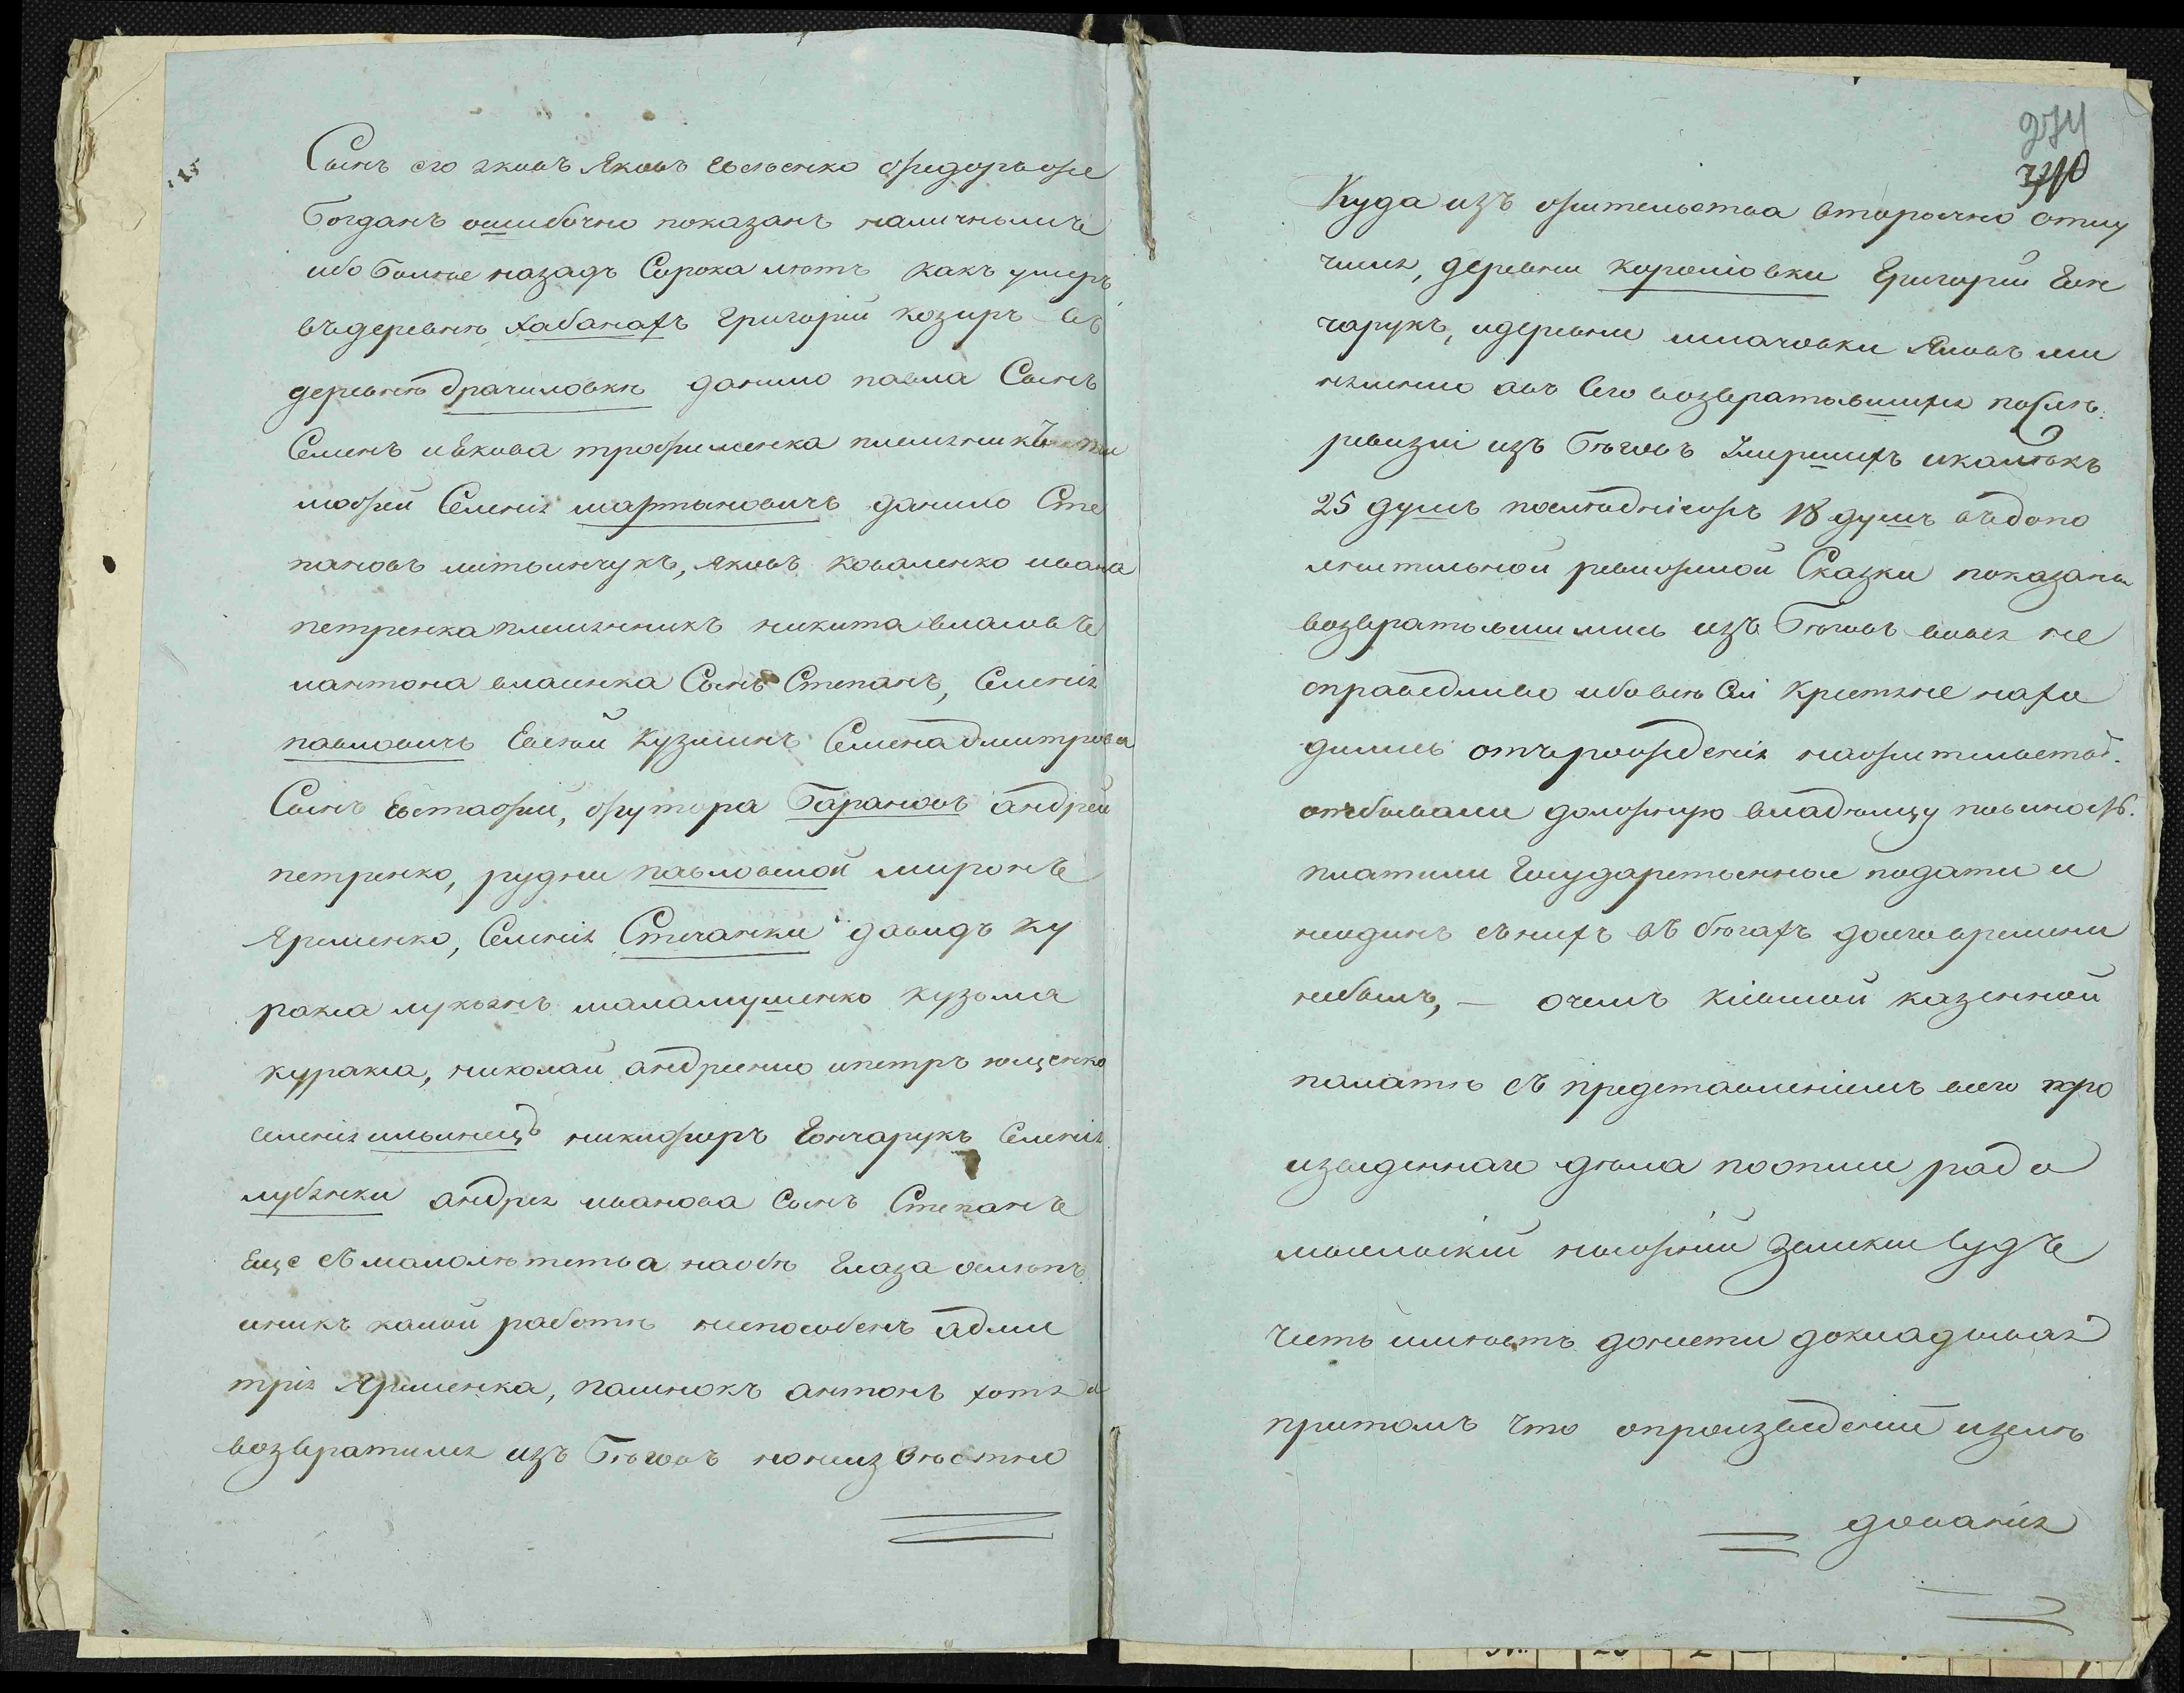 Сынъ его яковъ Яковъ Евсѣенко Ѳедоръ Ѳе
Богданъ ошибочно показанъ наличнымъ
ибо болѣе назадъ Сорока лѣтъ какъ умеръ
въ деревнѣ Хабанахъ Григорій козиръ въ
деревнѣ Драчиловкѣ данило павла Сынъ
Семенъ иякова трофименка племяникъ
моѳей Селенія мартыновичъ данило Сте
пановъ литвинчукъ, яковъ коваленко ивана
петренка племянникъ никита власовъ
иантона власенка Сынъ Степанъ, Селенія
павловичъ Евсѣй Кузминъ Семена дмитрова
Сынъ Евстафій, футора Барановъ андрей
петренко, рудни павловской миронъ
Яременко, Селенія Стечанки давидъ Ку
рака лукьянъ маламушенко кузьма
курака, николай андреенко ипетръ ющенко
селенія ильинецъ никифоръ Гончарукъ Селенія
лубянки андрея иванова Сынъ Степанъ
Еще съ малолѣтства наобѣ Глаза ослѣпъ
иникъ какой работѣ неспособенъ адми
трія Яременка, пасынокъ антонъ хотя и
возвратился изъ Бѣговъ нонеизвѣстно
274
Куда изъ жительства вторично отлу
чился, деревни королювки Григорій Гон
чарукъ, идеревни Яковъ
авъ Его возвратившихся послѣ
ревизіи изъ Бѣговъ Умершихъ икалѣкъ
25 душъ послѣднихъ 18 душъ въ допо
лнительной ревизской Сказки показаны
возвратившимись изъ Бѣговъ вовся не
справедливо ибо всѣ Сіи Крестяне нахо
дились отъ рожденія нажительствѣ
отбывали должную владѣльцу повиность
платили Государственные подати и
ниодинъ съ нихъ въ бѣгахъ долговремени
небылъ, — очемъ кіевской казенной
палатѣ съ представленіемъ всего про
изведеннаго дѣла поописи радо
мысльскій нижній Земскій Судъ
честь имѣетъ донести докладывая
притомъ что опроизведеніи изслѣ
дованія